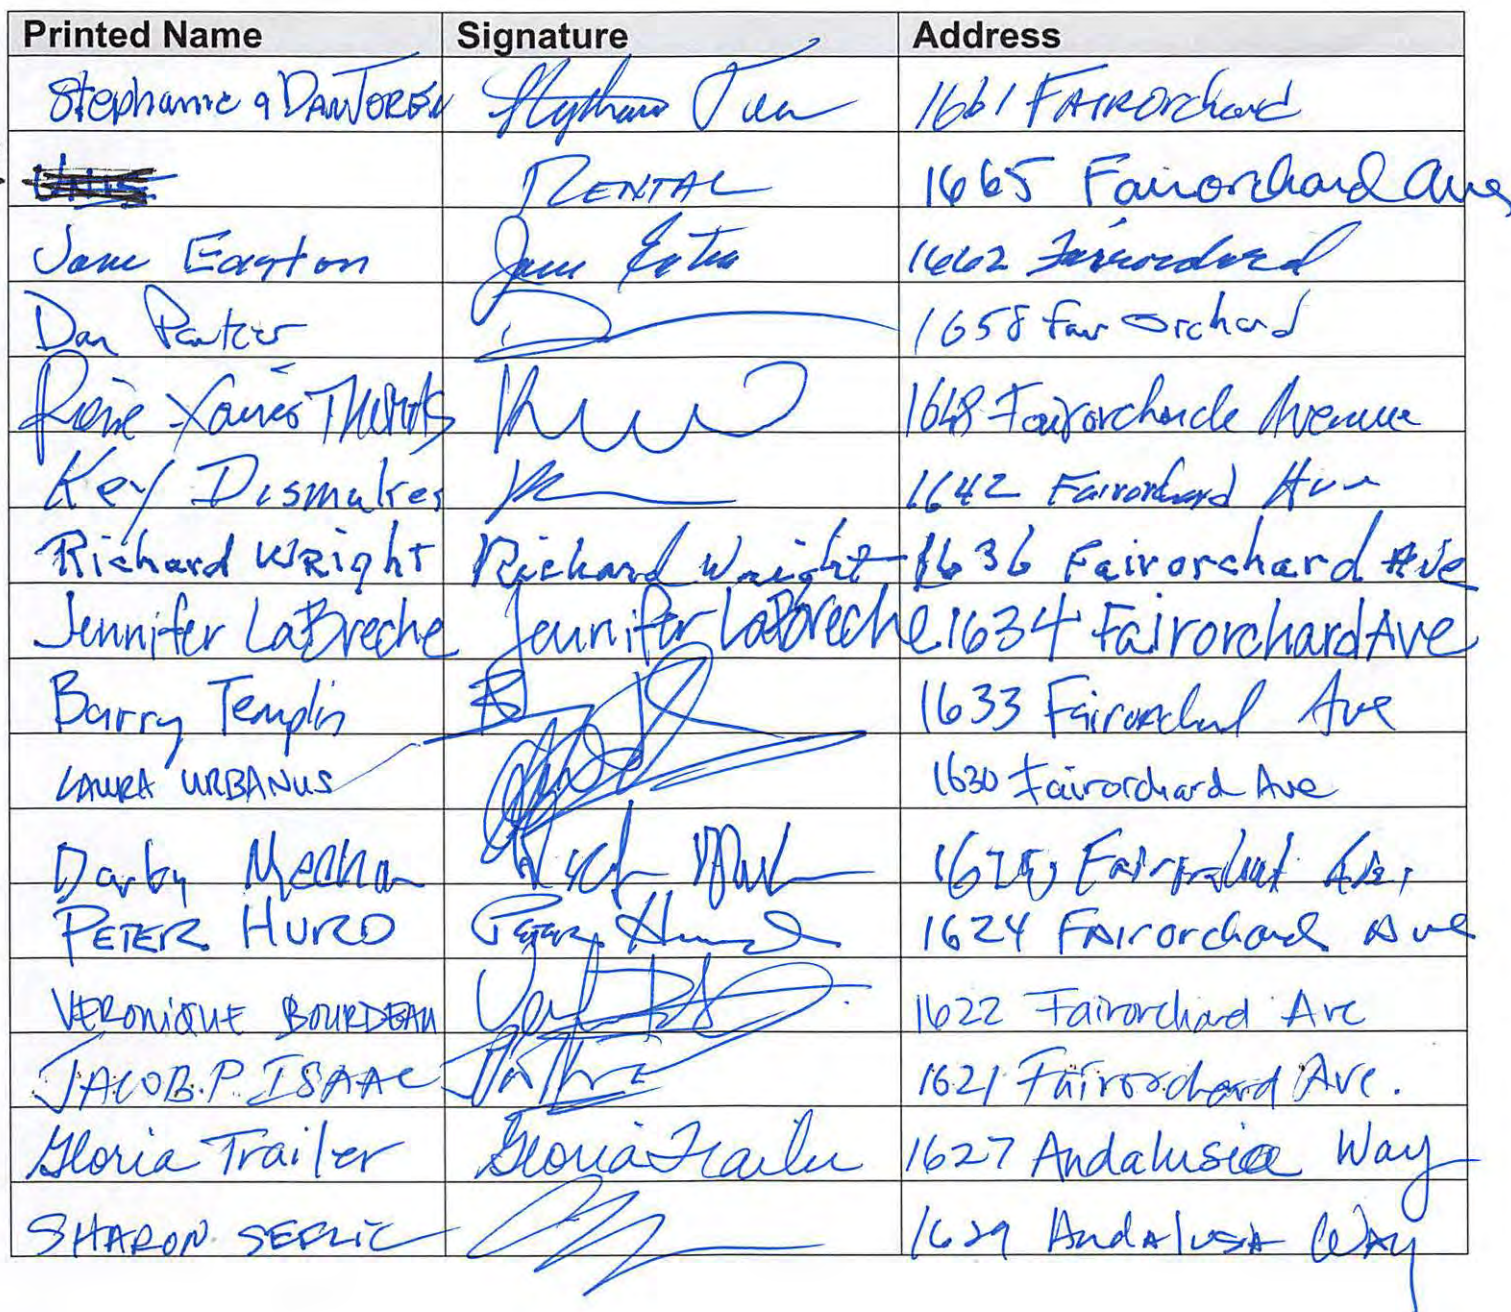 Printed Name Signature Address
Stephanie & Dan Toren 1661 FairOrchard
RENTAL 1665 Fairorchard Ave
Jane Easton 1662 Fairorchard
Dan 1658 Fair Orchard
1648 Fairorcharde Avenue
Key Dismukes 1642 Fairorchard Ave
Richard Wright Richard Wright 1636 Fairorchard Ave
Jennifer LaBreche Jennifer LaBreche 1634 Fairorchard Ave
Barry Templin 1633 Fairorchard Ave
LAURA URBANUS 1630 Fairorchard Ave
Darby Fairorchard Ave.
PETER HURD Peter Hurd 1624 Fairorchard Ave
VERONIQUE BOURDEAU 1622 Fairorchard Ave
JACOB.P. ISAAC 1621 Fairorchard Ave.
Gloria Trailer Gloria Trailer 1627 Andalusia Way
SHARON 1629 Andalusia Way